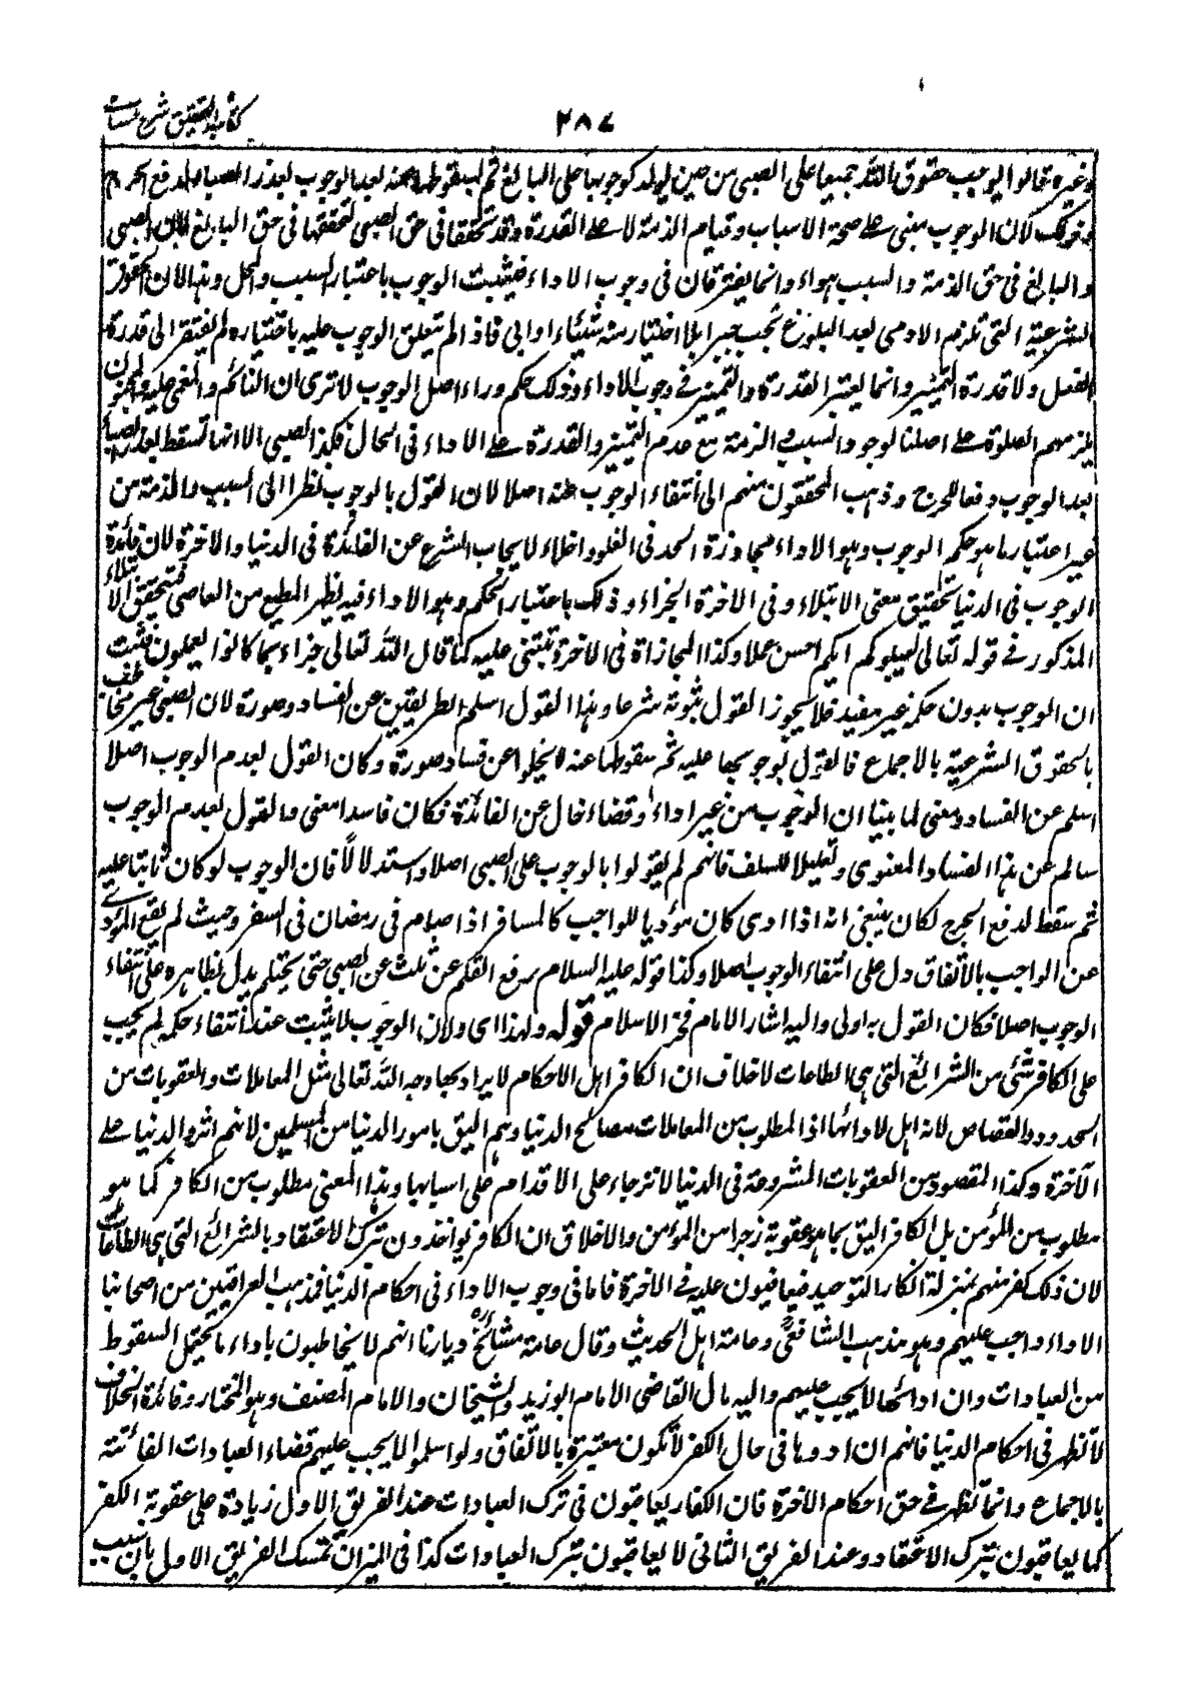 كتاب التحقيق شرح حسامى
٢٨٧
وغيره قالوا بوجوب حقوق الله جميعا على الصبى من حين يولد كوجوبها على البالغ ثم لسقوطها عنه بعد الوجوب بعذر الصبا لدفع الحرج
وذلك لان الوجوب مبنى على صحة الاسباب وقيام الذمة لا على القدرة وقد تحققا فى حق الصبى لتحققهما فى حق البالغ لان الصبى
والبالغ فى حق الذمة والسبب سواء وانما يفترقان فى وجوب الاداء فيثبت الوجوب باعتبار السبب والمحل وهذا لان الحقوق
الشرعية التى تلزم الادمى بعد البلوغ تجب جبرا بلا اختيار منه شاء او ابى فاذا لم يتعلق الوجوب عليه باختياره لم يفتقر الى قدرة
الفعل ولا قدرة التمييز وانما يعتبر القدرة والتمييز فى وجوب الاداء وذلك حكم وراء اصل الوجوب لا ترى ان النائم والمغمى عليه والمجنون
يلزمهم الصلوة على اصلنا لوجود السبب والذمة مع عدم التمييز والقدرة على الاداء فى الحال فكذا الصبى الا انها تسقط بعذر الصبا
بعد الوجوب دفعا للحرج وذهب المحققون منهم الى انتفاء الوجوب عنه اصلا لان القول بالوجوب نظرا الى السبب والذمة من
غير اعتبار ما هو حكم الوجوب وهو الاداء مجاوزة الحد فى الغلو واخلاء لايجاب الشرع عن الفائدة فى الدنيا والاخرة لان فائدة
الوجوب فى الدنيا تحقيق معنى الابتلاء وفى الاخرة الجزاء وذلك باعتبار الحكم وهو الاداء فيه يظهر المطيع من العاصى فتحقق الابتلاء
المذكور فى قوله تعالى ليبلوكم ايكم احسن عملا وكذا المجازاة فى الاخرة تبتنى عليه كما قال الله تعالى جزاء بما كانوا يعملون فثبت
ان الوجوب بدون حكمه غير مفيد فلا يجوز القول بثبوته شرعا وهذا القول اسلم الطريقين عن الفساد صورة لان الصبى غير مخاطب
بالحقوق الشرعية بالاجماع فالقول بوجوبها عليه ثم سقوطها عنه لا يخلوا عن فساد صورة وكان القول بعدم الوجوب اصلا
اسلم عن الفساد ومعنى لما بينا ان الوجوب من غير اداء وقضاء خال عن الفائدة فكان فاسدا معنى والقول بعدم الوجوب
سالم عن هذا الفساد المعنوى وتعليلا للسلف فانهم لم يقولوا بالوجوب على الصبى اصلا واستدلالا فان الوجوب لو كان ثابتا عليه
ثم سقط لدفع الحرج لكان ينبغى انه اذا ادى كان مؤديا للواجب كالمسافر اذا صام فى رمضان فى السفر وحيث لم يقع المؤدى
عن الواجب بالاتفاق دل على انتفاء الوجوب اصلا وكذا قوله عليه السلام رفع القلم عن ثلث عن الصبى حتى يحتلم يدل بظاهره على انتفاء
الوجوب اصلا فكان القول به اولى واليه اشار الامام فخر الاسلام قوله ولهذا اى ولان الوجوب لا يثبت عند انتفاء حكمه لم يجب
على الكافر شئ من الشرائع التى هى الطاعات لا خلاف ان الكافر اهل الاحكام لا يراد بها وجه الله تعالى مثل المعاملات والعقوبات من
الحدود والقصاص لانه اهل لادائها اذ المطلوب من المعاملات مصالح الدنيا وهم اليق بامور الدنيا من المسلمين لانهم اثروا الدنيا على
الآخرة وكذا المقصود من العقوبات المشروعة فى الدنيا الانزجار على الاقدام على اسبابها وهذا المعنى مطلوب من الكافر كما هو
مطلوب من المؤمن بل الكافر اليق بما هو عقوبة زجرا من المؤمن والاخلاق ان الكافر يواخذون بترك الاعتقاد بالشرائع التى هى الطاعات
لان ذلك كفر منهم بمنزلة انكار التوحيد فيعاقبون عليه فى الاخرة فاما فى وجوب الاداء فى احكام الدنيا فمذهب العراقيين من اصحابنا
الاداء واجب عليهم وهو مذهب الشافعى وعامة اهل الحديث وقال عامة مشائخ ديارنا انهم لا يخاطبون باداء ما يحتمل السقوط
من العبادات وان اداءها لا يجب عليهم واليه مال القاضى الامام ابو زيد والشيخان والامام المصنف وهو المختار وفائدة الخلاف
لا تظهر فى احكام الدنيا فانهم ان ادوها فى حال الكفر لا تكون معتبرة بالاتفاق ولو اسلموا لا يجب عليهم قضاء العبادات الفائتة
بالاجماع وانما تظهر فى حق احكام الاخرة فان الكفار يعاقبون فى ترك العبادات عند الفريق الاول زيادة على عقوبة الكفر
كما يعاقبون بترك الاعتقاد وعند الفريق الثانى لا يعاقبون بترك العبادات كذا فى الميزان تمسك الفريق الاول بان سبب